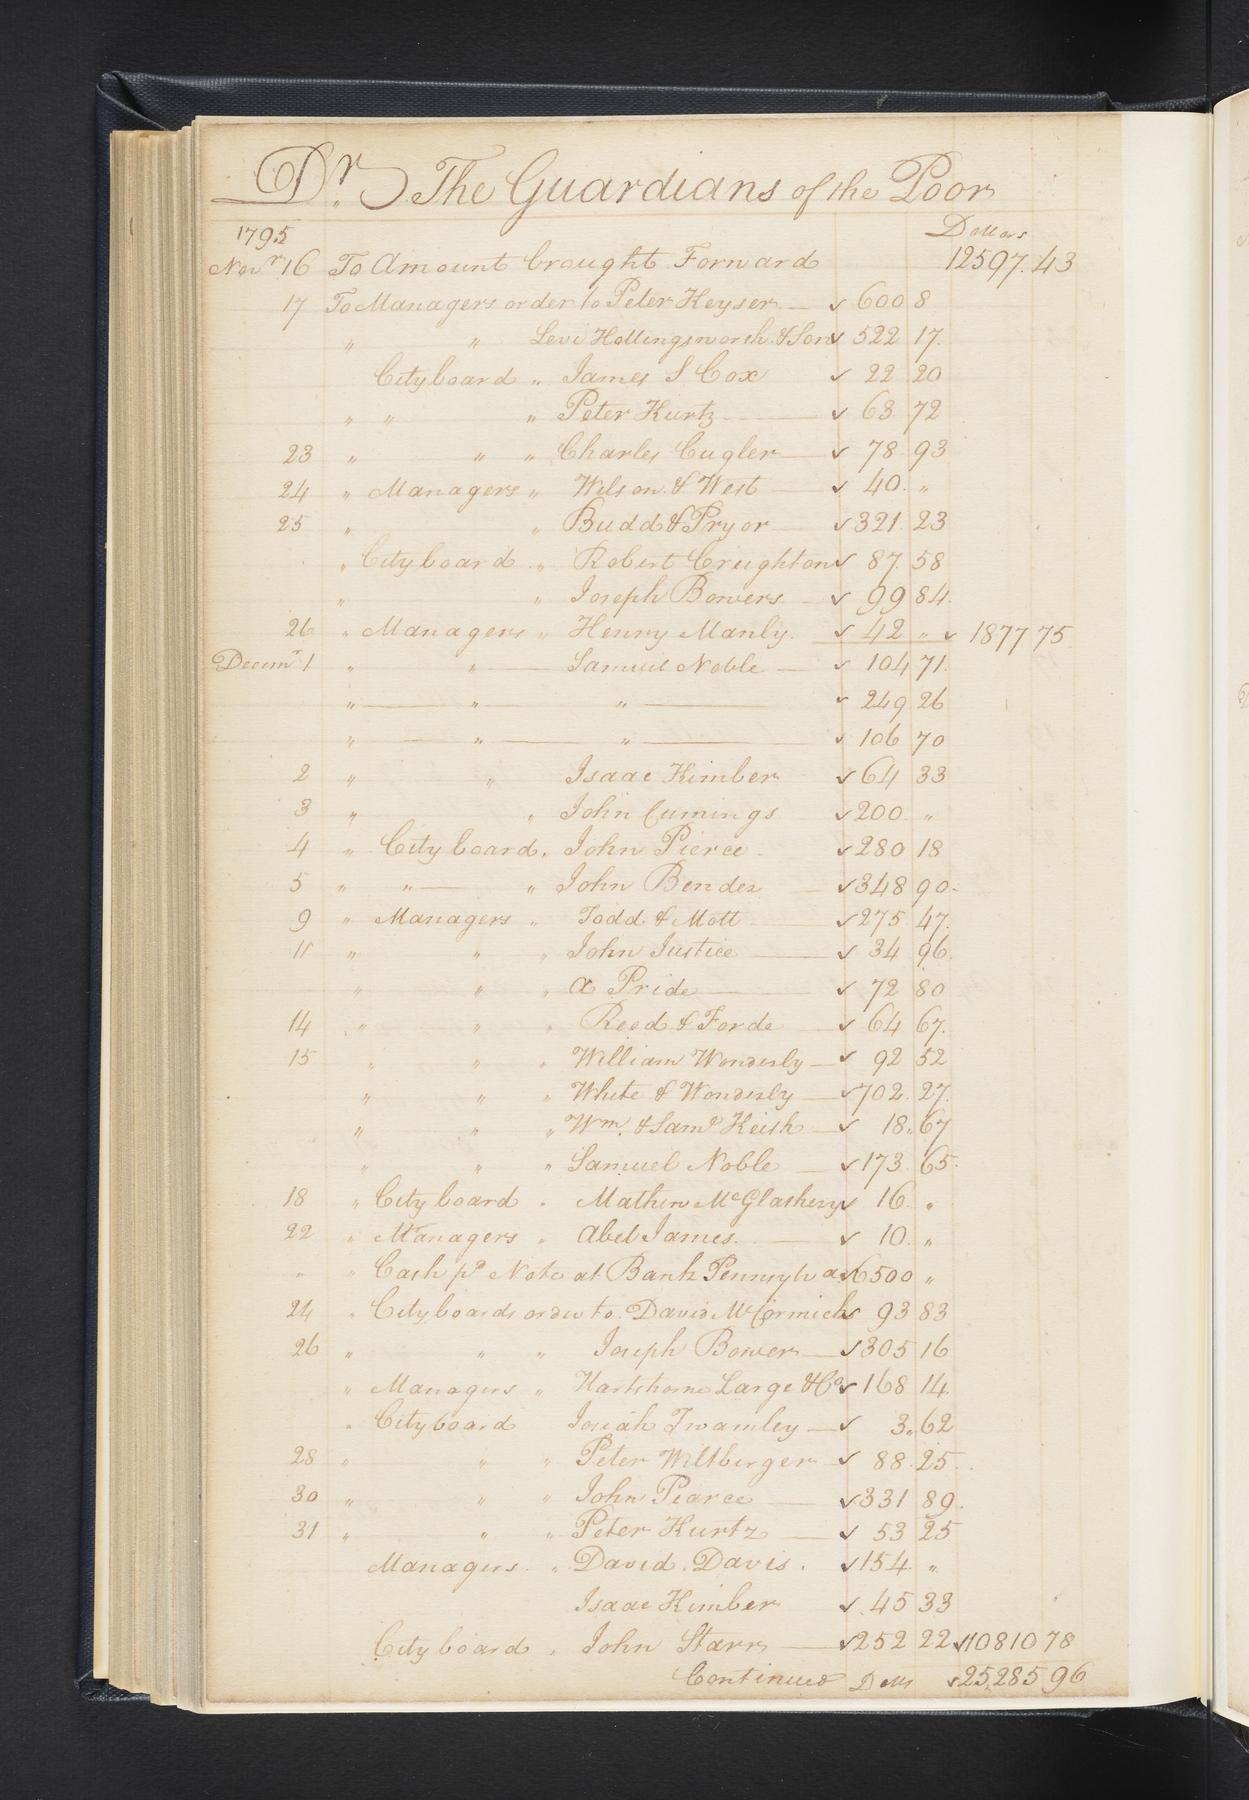 Dr. The Guardians of the Poor
1795 Dollars
Novr 16 To Amount brought Forward 12597.43
17 To Managers order to Peter Keyser ✓ 600 8
" " Levi Hollingsworth & Son ✓ 522 17
Cityboard " James S Cox ✓ 22 20
" " " Peter Kurtz ✓ 63 72
23 " " " Charles Cugler ✓ 78 93
24 " Managers " Wilson & West ✓ 40 "
25 " " Budd & Pryor ✓ 321 23
" Cityboard " Robert Creighton ✓ 87 58
" " Joseph Bowers ✓ 99 84
26 " Managers " Henry Manly ✓ 42 " ✓ 1877 75
Decemr 1 " " Samuel Noble ✓ 104 71
" " " ✓ 249 26
" " " ✓ 106 70
2 " " Isaac Kimber ✓ 64 33
3 " " John Cumings ✓ 200 "
4 " City board " John Pierce ✓ 280 18
5 " " " John Bender ✓ 348 90
9 " Managers " Todd & Mott ✓ 275 47
11 " " " John Justice ✓ 34 96
" " " A Pride ✓ 72 80
14 " " " Reed & Forde ✓ 64 67
15 " " " William Wonderly ✓ 92 52
" " " White & Wonderly ✓ 702 27
" " " Wm. & Saml Keith ✓ 18 67
" " " Samuel Noble ✓ 173 65
18 " City board " Mathew McGlathery ✓ 16 "
22 " Managers " Abel James ✓ 10 "
" " Cash pd Note at Bank Pennsylva ✓ 6500 "
24 " Cityboards order to David McCormick ✓ 93 83
26 " " " Joseph Bower ✓ 305 16
" Managers " Hartshorne Large & Co ✓ 168 14
" City board Josiah Twamley ✓ 3 62
28 " " " Peter Wiltberger ✓ 88 25
30 " " " John Pearce ✓ 331 89
31 " " " Peter Kurtz ✓ 53 25
Managers " David Davis ✓ 154 "
Isaac Kimber ✓ 45 33
City board " John Starr ✓ 252 22 ✓ 10810 78
Continued Dolls ✓ 25,285 96